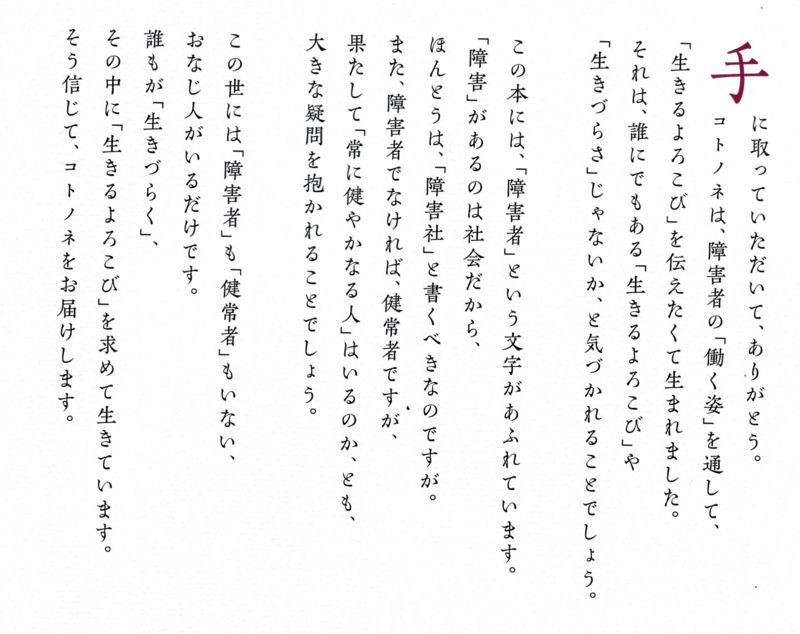 手に取っていただいて、ありがとう。
コトノネは、障害者の「働く姿」を通して、
「生きるよろこび」を伝えたくて生まれました。
それは、誰にでもある「生きるよろこび」や
「生きづらさ」じゃないか、と気づかれることでしょう。
この本には、「障害者」という文字があふれています。
「障害」があるのは社会だから、
ほんとうは、「障害社」と書くべきなのですが。
また、障害者でなければ、健常者ですが、
果たして「常に健やかなる人」はいるのか、とも、
大きな疑問を抱かれることでしょう。
この世には、「障害者」も「健常者」もいない、
おなじ人がいるだけです。
誰もが「生きづらく」、
その中に「生きるよろこび」を求めて生きています。
そう信じて、コトノネをお届けします。